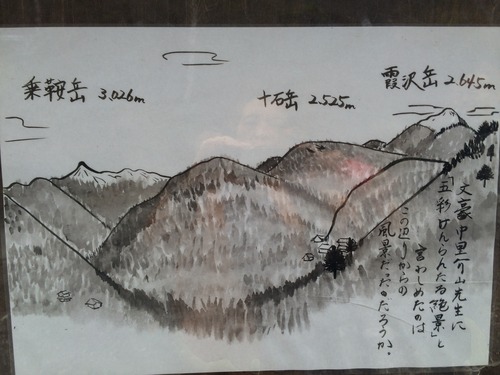 乗鞍岳 3,026m
十石岳 2.525m
霞沢岳 2.645m
文豪中里介山先生に
「五彩けんらんたる絶景」と
言わしめたのは
この辺りからの
風景だったのだろうか。